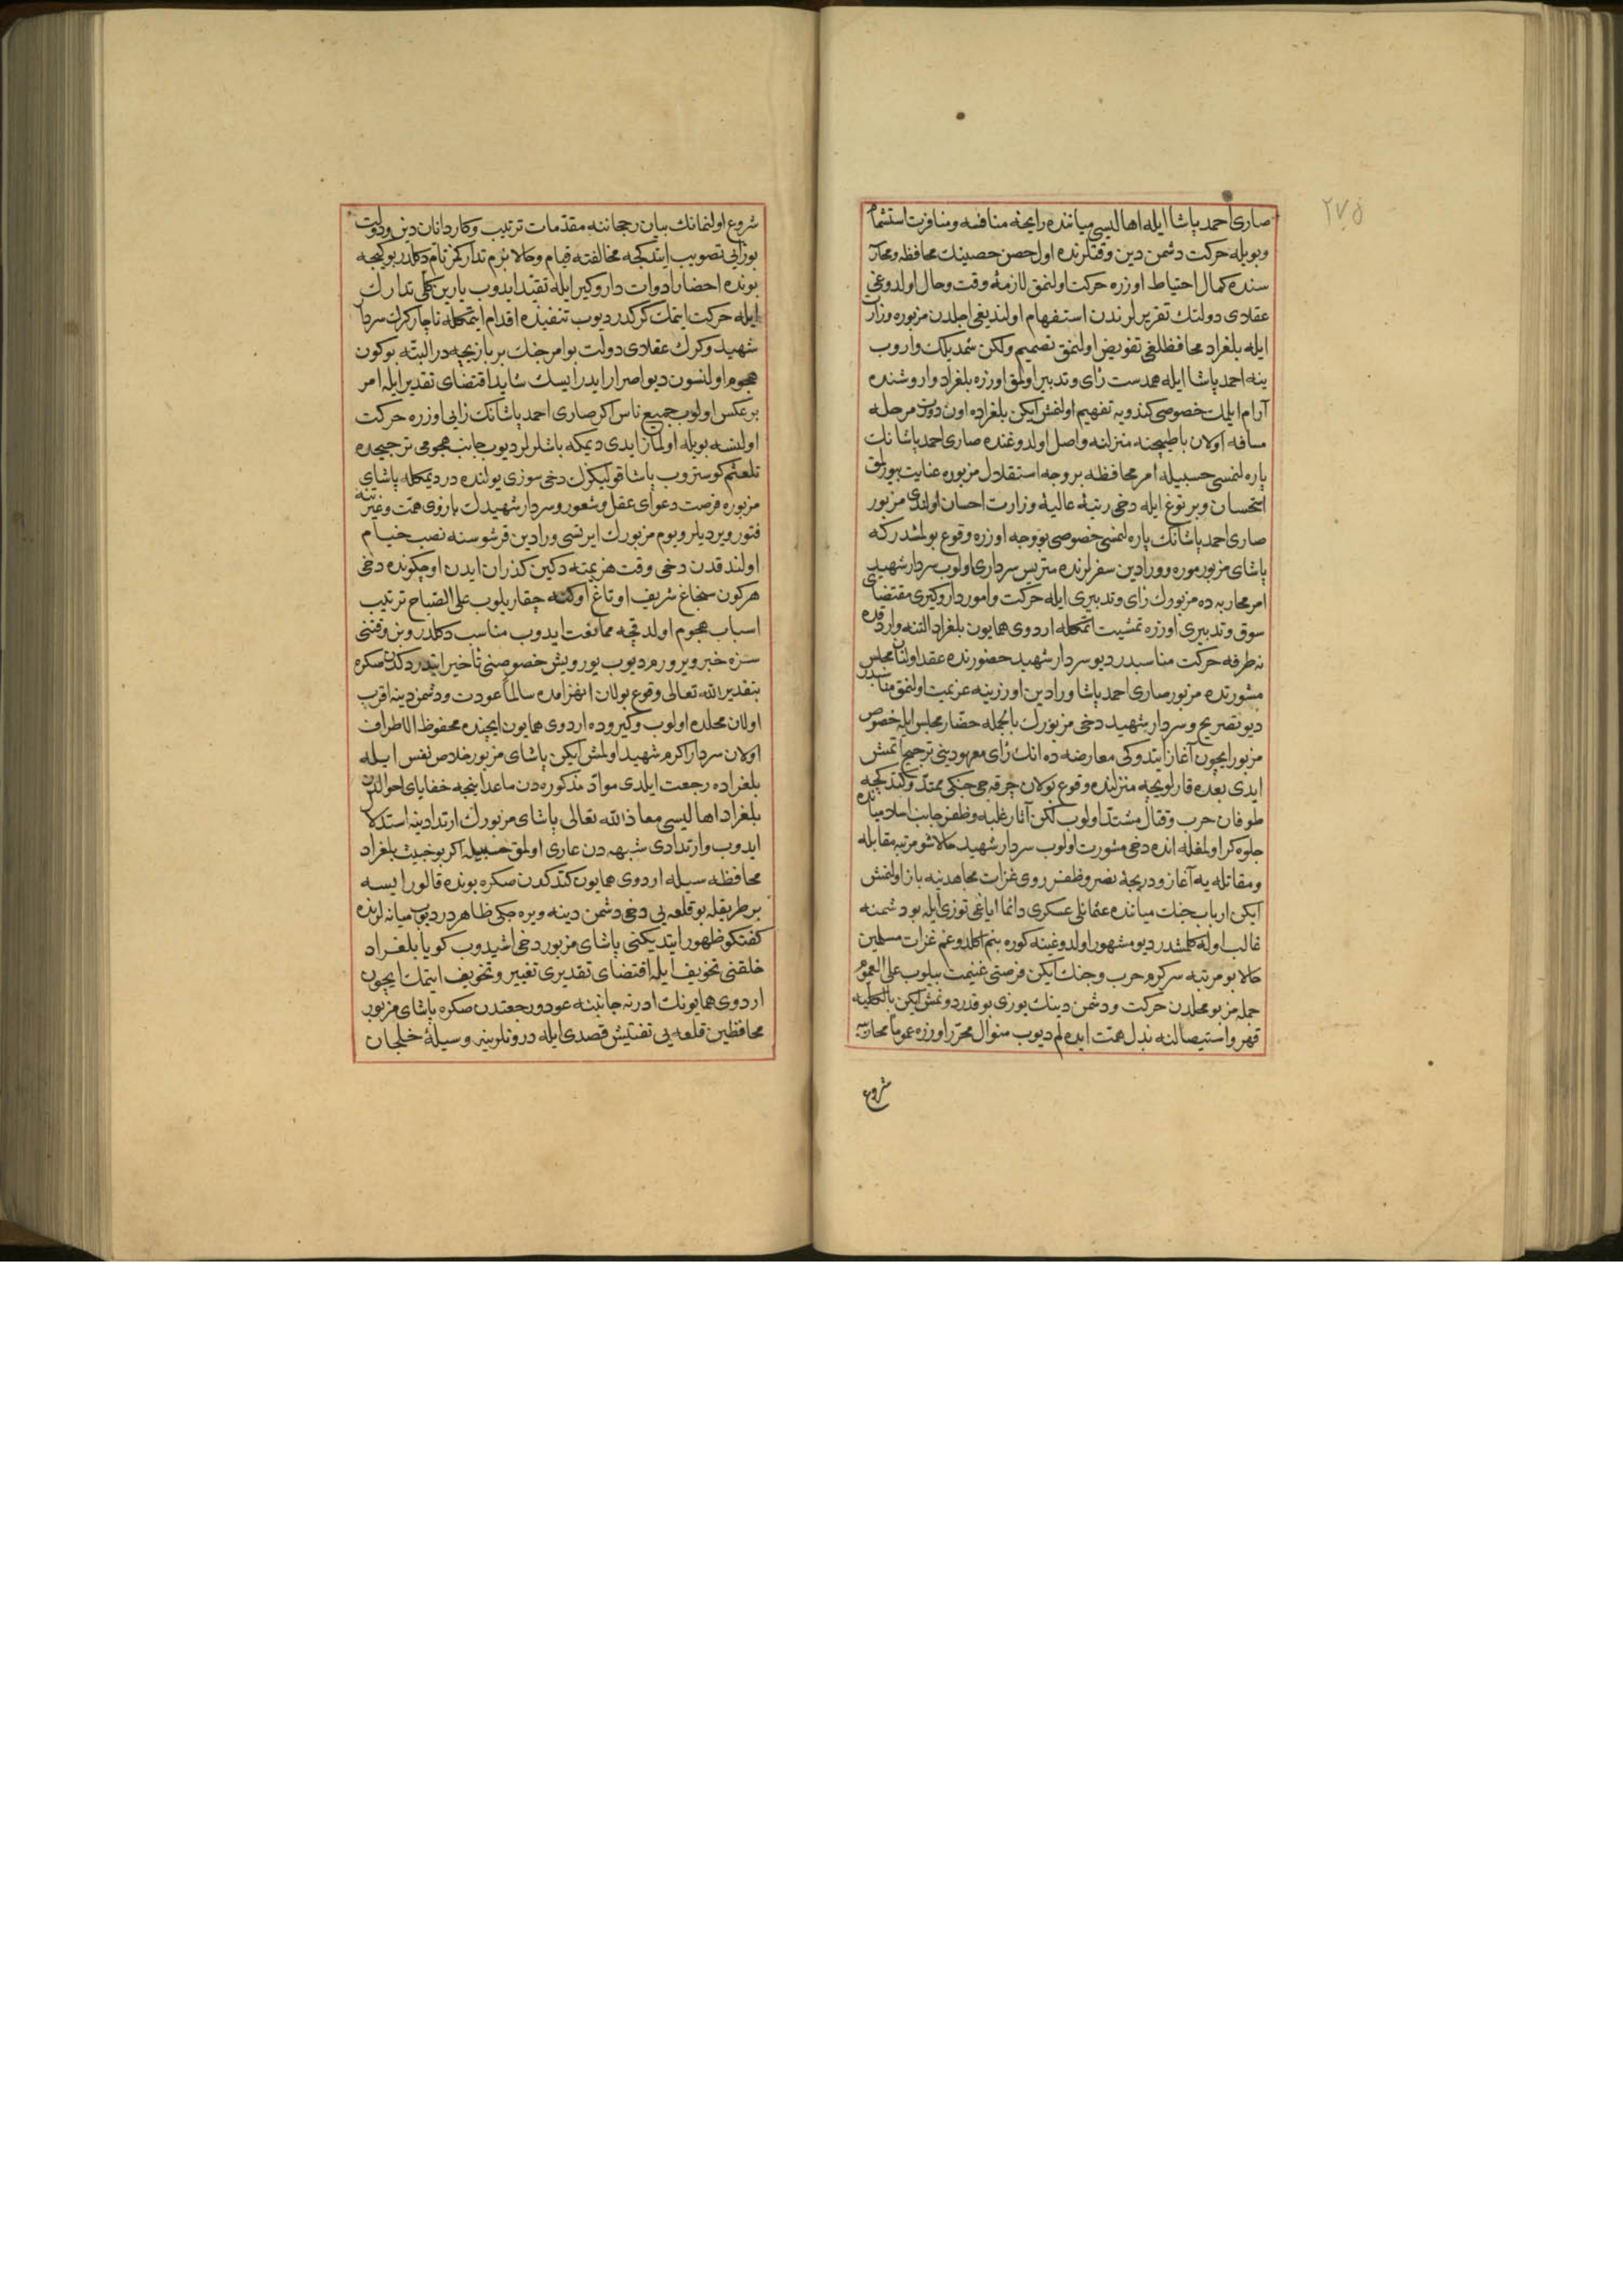 ٢٧۵
صاری احمد پاشا ایله اهالیسی میاننده رایحهٔ منافسه ومنافرت استشمام
وبویله حرکت دشمن دین وقتلرنده اول حصن حصینك محافظه ومحار
سنده کمال احتیاط اوزره حرکت اولنمق لازمهٔ وقت وحال اولدوغی
عقلای دولتك تقریرلرندن استفهام اولندیغی اجلدن مزبوره وزارت
ایله بلغراد محافظلغی تفویض اولنمق تصمیم ولکن شمدیلك واروب
ینه احمد پاشا ایله همدست رأی وتدبیر اولمق اوزره بلغراد واروشنده
آرام ایلمك خصوصی کندویه تفهیم اولنمش ایکن بلغراده اون دورت مرحله
مسافه اولان باطیجنه منزلنه واصل اولدوغنده صاری احمد پاشانك
پاره لنمسی حسبیله امر محافظه بر وجه استقلال مزبوره عنایت بیورلمق
استحسان وبر توغ ایله دخی رتبهٔ عالیهٔ وزارت احسان اولندی مزبور
صاری احمد پاشانك پاره لنمسی خصوصی بو وجه اوزره وقوع بولمشدرکه
پاشای مزبور موره و ورادین سفرلرنده متریس سرداری اولوب سردار شهید
امر محاربه ده مزبورك رأی وتدبیری ایله حرکت وامور داروکیری مقتضای
سوق وتدبیری اوزره تمشیت اتمکله اردوی همایون بلغراد التنه واردقده
نه طرفه حرکت مناسبدر دیو سردار شهید حضورنده عقد اولنان مجلس
مشورتده مزبور صاری احمد پاشا ورادین اوزرینه عزیمت اولنمق مناسبدر
دیو تصریح وسردار شهید دخی مزبورك بالجمله حضار مجلس ایله خصوص
مزبور ایچون آغاز ایتدوکی معارضه ده انك رأی معهودینی ترجیح اتمش
ایدی بعده قارلویجه منزلنده وقوع بولان چرخه جی جنکی ممتد وکتدکجه
طوفان حرب وقتال مشتد اولوب لکن آثار غلبه وظفر جانب اسلامیاننده
جلوه کر اولمغله انده دخی مشورت اولوب سردار شهید حالا شو مرتبه مقابله
ومقاتله یه آغاز ودریچهٔ نصر وظفر روی غزات مجاهدینه باز اولنمش
ایکن ارباب جنك میاننده عثمانلی عسکری دائما ایاغی توزی ایله بو دشمنه
غالب اوله کلمشدر دیو مشهور اولدوغینه کوره بنم اکلدوغم غزات مسلمین
حالا بو مرتبه سرکرم حرب وجنك ایکن فرصتی غنیمت بیلوب علی العموم
جمله مز بو محلدن حرکت ودشمن دینك یوزی بو قدر دونمش ایکن بالکلیه
قهر واستیصالنه بذل همت ایده لم دیوب منوال محرر اوزره عموماً محاربه یه
شروع
شروع اولنمانك بیان رجحاننه مقدمات ترتیب وکاردانان دین ودولت
بو رأیی تصویب ایتدکجه مخالفته قیام وحالا بزم تدارکمز تام دکلدر بو کیجه
بونده احضار ادوات داروکیر ایله تقید ایدوب یارین کلی تدارك
ایله حرکت ایتمك کرکدر دیوب تنفیذه اقدام ایتمکله ناچار کرك سردار
شهید وکرك عقلای دولت بو امر جنك بر بازیچه در البته بوکون
هجوم اولنسون دیو اصرار ایدر ایسك شاید اقتضای تقدیر ایله امر
بر عکس اولوب جمیع ناس اکر صاری احمد پاشانك رایی اوزره حرکت
اولنسه بویله اولمازایدی دیمکه باشلرلر دیوب جانب هجومی ترجیحده
تلعثم کوستروب پاشا قولیکزك دخی سوزی یولنده در دیمکله پاشای
مزبوره فرصت دعوای عقل وشعور وسردار شهیدك بازوی همت وغیرتنه
فتور ویردیلر ویوم مزبورك ایرتسی ورادین قرشوسنه نصب خیام
اولندقدن دخی وقت هزیمته دکین کذران ایدن اوچ کونده دخی
هر کون سنجاغ شریف اوتاغ اوکنه چقاریلوب علی الصباح ترتیب
اسباب هجوم اولدقجه ممانعت ایدوب مناسب دکلدر وبن وقتنی
سزه خبر ویرورم دیوب یورویش خصوصنی تأخیر ایتدردکدن صکره
بتقدیر الله تعالی وقوع بولان انهزامده سالماً عودت ودشمن دینه اقرب
اولان محلده اولوب وکیروده اردوی همایون ایچنده محفوظ الاطراف
اولان سردار اکرم شهید اولمش ایکن پاشای مزبور خلاص نفس ایله
بلغراده رجعت ایلدی مواد مذکوره دن ماعدا نیجه خفایای احوالدن
بلغراد اهالیسی معاذ الله تعالی پاشای مزبورك ارتدادینه استدلال
ایدوب وارتدادی شبهه دن عاری اولمق حسبیله اکر بو خبیث بلغراد
محافظه سیله اردوی همایون کتدکدن صکره بونده قالور ایسه
بر طریقله بو قلعه یی دخی دشمن دینه ویره جکی ظاهردر دیوب میانه لرنده
کفتکو ظهور ایتدیکنی پاشای مزبور دخی اشیدوب کویا بلغراد
خلقنی تخویف ایله اقتضای تقدیری تغییر وتخویف ایتمك ایچون
اردوی همایونك ادرنه جانبنه عود ورجعتدن صکره پاشای مزبور
محافظین قلعه یی تفتیش قصدی ایله درونلرینه وسیلهٔ خلجان